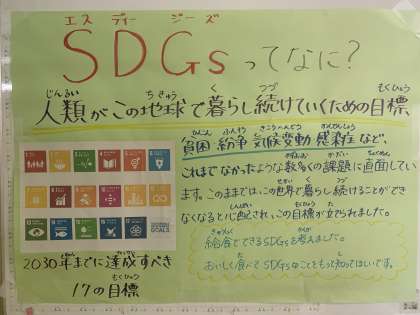 エス ディー ジーズ
SDGsってなに?
じんるい ちきゅう く つづ もくひょう
人類がこの地球で暮らし続けていくための目標
ひんこん ふんそう きこうへんどう かんせんしょう
貧困 紛争 気候変動 感染症など、
これまでなかったような数多くの課題に直面してい
ます。このままでは、この世界で暮らし続けることができ
なくなると心配され、この目標が立てられました。
2030年までに達成すべき
17の目標
給食でできるSDGsを考えました。
おいしく食べてSDGsのことももっと知ってほしいです。